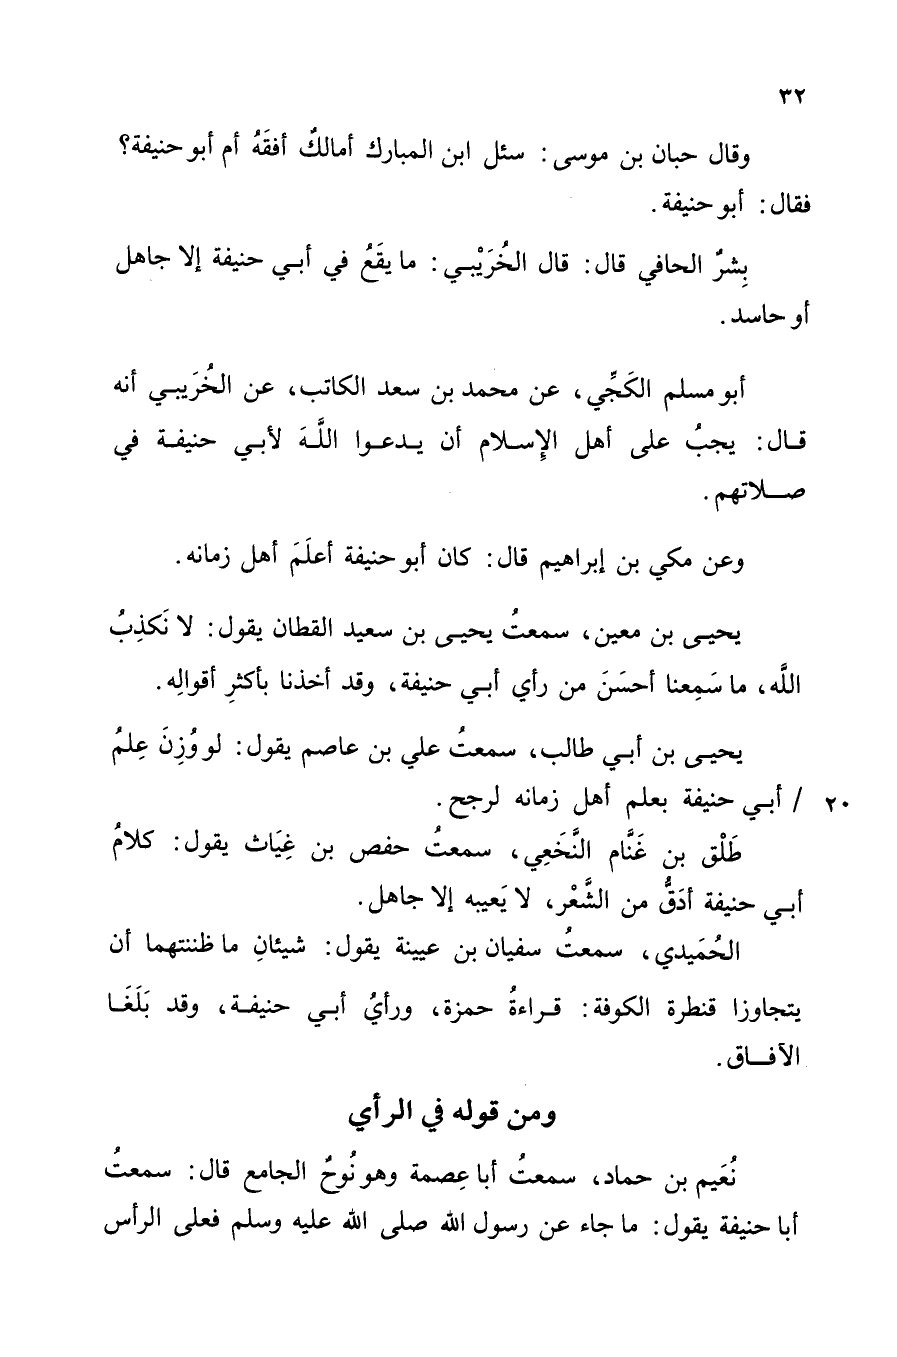 ٣٢
وقال حبان بن موسى: سئل ابن المبارك أمالكٌ أفقَهُ أم أبو حنيفة؟
فقال: أبو حنيفة.
بِشرٌ الحافي قال: قال الخُرَيْبي: ما يقَعُ في أبي حنيفة إلا جاهل
أو حاسد.
أبو مسلم الكَجِّي، عن محمد بن سعد الكاتب، عن الخُرَيبي أنه
قال: يجبُ على أهل الإسلام أن يدعوا اللَّهَ لأبي حنيفة في
صلاتهم.
وعن مكي بن إبراهيم قال: كان أبو حنيفة أعلَمَ أهل زمانه.
يحيى بن معين، سمعتُ يحيى بن سعيد القطان يقول: لا نَكذِبُ
اللَّه، ما سَمِعنا أحسَنَ من رأي أبي حنيفة، وقد أخذنا بأكثرِ أقوالِه.
يحيى بن أبي طالب، سمعتُ علي بن عاصم يقول: لو وُزِنَ عِلمُ
٢٠ / أبي حنيفة بعلم أهل زمانه لرجح.
طَلْق بن غَنَّام النَّخَعِي، سمعتُ حفص بن غِيَاث يقول: كلامُ
أبي حنيفة أدَقُّ من الشَّعْر، لا يَعيبه إلا جاهل.
الحُمَيدي، سمعتُ سفيان بن عيينة يقول: شيئانِ ما ظننتهما أن
يتجاوزا قنطرة الكوفة: قراءةُ حمزة، ورأيُ أبي حنيفة، وقد بَلَغَا
الآفاق.
ومن قوله في الرأي
نُعَيم بن حماد، سمعتُ أبا عِصمة وهو نُوحٌ الجامع قال: سمعتُ
أبا حنيفة يقول: ما جاء عن رسول الله صلى الله عليه وسلم فعلى الرأس